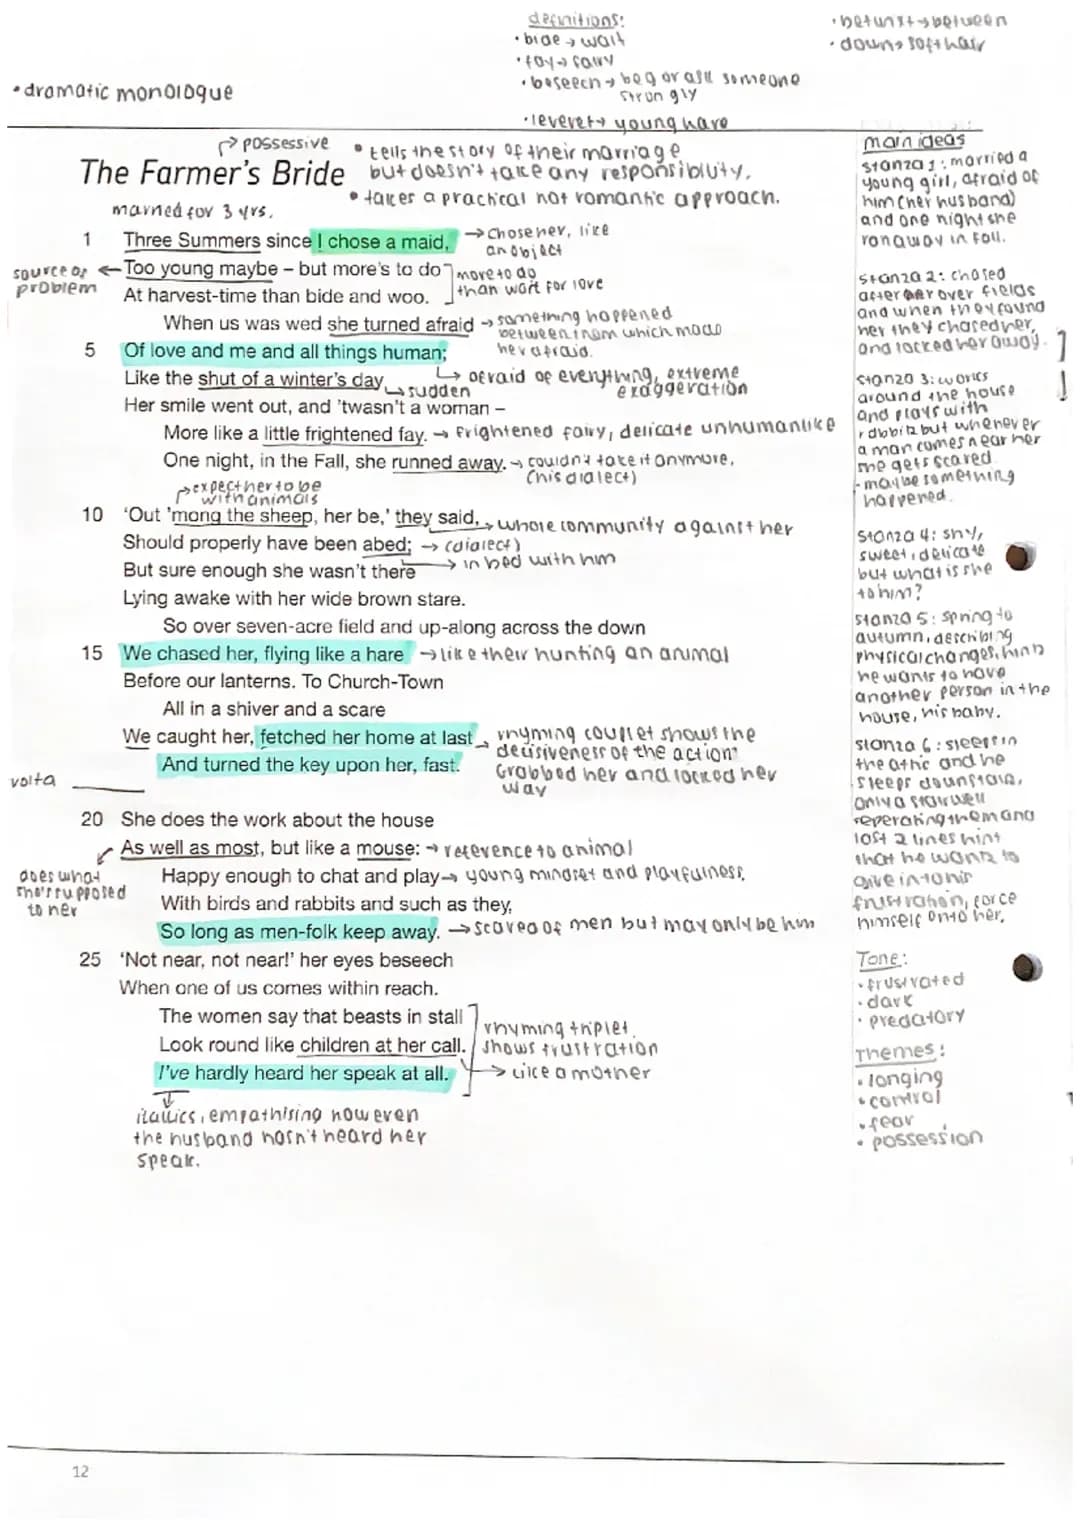 definitions:
• bide → wait
• fay → fairy
• beseech → beg or ask someone
strongly
• leveret → young hare
• betwixt → between
• down → soft hair
• dramatic monologue
→ possessive
The Farmer's Bride
• tells the story of their marriage
but doesn't take any responsibility.
• takes a practical not romantic approach.
married for 3 yrs.
1 Three Summers since I chose a maid,
→ chose her, like
an object
source of
problem
Too young maybe – but more's to do
At harvest-time than bide and woo.
more to do
than wait for love
When us was wed she turned afraid
→ something happened
between them which made
her afraid.
5 Of love and me and all things human;
↳ afraid of everything, extreme
exaggeration
Like the shut of a winter's day
↳ sudden
Her smile went out, and 'twasn't a woman –
More like a little frightened fay. → Frightened fairy, delicate unhumanlike
One night, in the Fall, she runned away. → couldn't take it anymore,
(his dialect)
→ expect her to be
with animals
10 'Out 'mong the sheep, her be,' they said, → whole community against her
Should properly have been abed; → (dialect)
→ in bed with him
But sure enough she wasn't there
Lying awake with her wide brown stare.
So over seven-acre field and up-along across the down
15 We chased her, flying like a hare → like their hunting an animal
Before our lanterns. To Church-Town
All in a shiver and a scare
We caught her, fetched her home at last
And turned the key upon her, fast.
→ rhyming couplet shows the
decisiveness of the action"
Grabbed her and locked her
way
volta
20 She does the work about the house
As well as most, but like a mouse: → reference to animal
does what
she's supposed
to her
Happy enough to chat and play → young mindset and playfulness,
With birds and rabbits and such as they,
So long as men-folk keep away. → scared of men but may only be him
25 'Not near, not near!' her eyes beseech
When one of us comes within reach.
The women say that beasts in stall
Look round like children at her call.
I've hardly heard her speak at all.
rhyming triplet
shows frustration
→ like a mother
italics, empathising how even
the husband hasn't heard her
speak.
main ideas
Stanza 1: married a
young girl, afraid of
him (her husband)
and one night she
ran away in Fall.
Stanza 2: chased
after her over fields
and when they found
her they chased her,
and locked her away.
Stanza 3: works
around the house
and plays with
rabbits but whenever
a man comes near her
she gets scared
- maybe something
happened.
Stanza 4: shy,
sweet, delicate
but what is she
to him?
Stanza 5: spring to
autumn, describing
physical changes, hints
he wants to have
another person in the
house, his baby.
Stanza 6: sleeps in
the attic and he
sleeps downstairs,
only a stairwell
seperating them and
last 2 lines hint
that he wants to
give in to his
frustration, force
himself onto her.
Tone:
• frustrated
• dark
• predatory
Themes:
• longing
• control
• fear
• possession
12